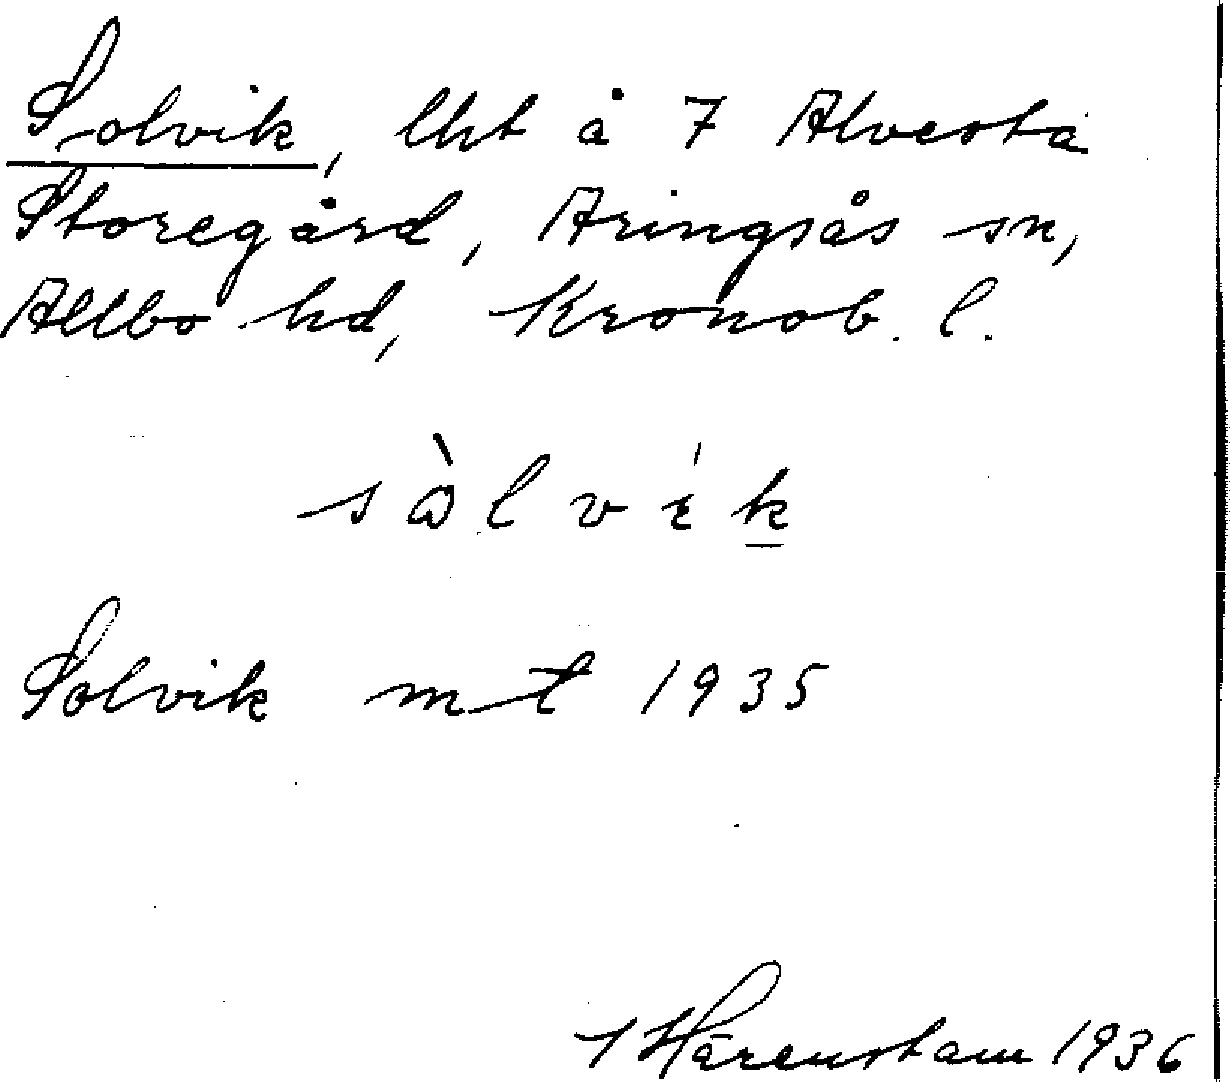 Solvik, lht å 7 Alvesta
Storegård, Aringsås sn,
Allbo hd, Kronob. l.
sòlvík
Solvik mt 1935
Härenstam 1936